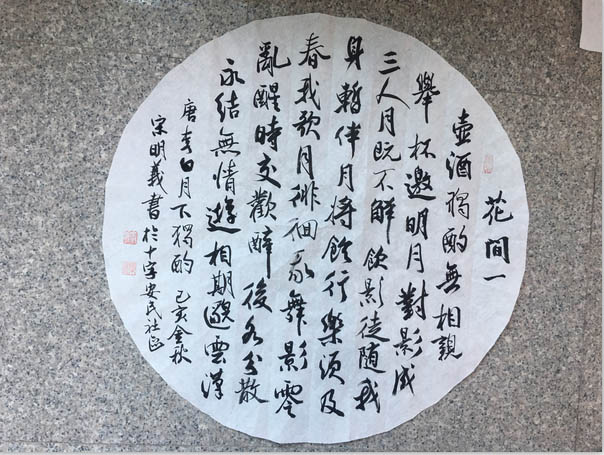 花間一
壺酒獨酌無相親
舉杯邀明月對影成
三人月既不解飲影徒隨我
身暫伴月將行樂須及
春我歌月徘徊我舞影零
亂醒時交歡醉後各分散
永結無情遊相期邈雲漢
唐李白月下獨酌 己亥金秋
宋明義書於十字安民社区